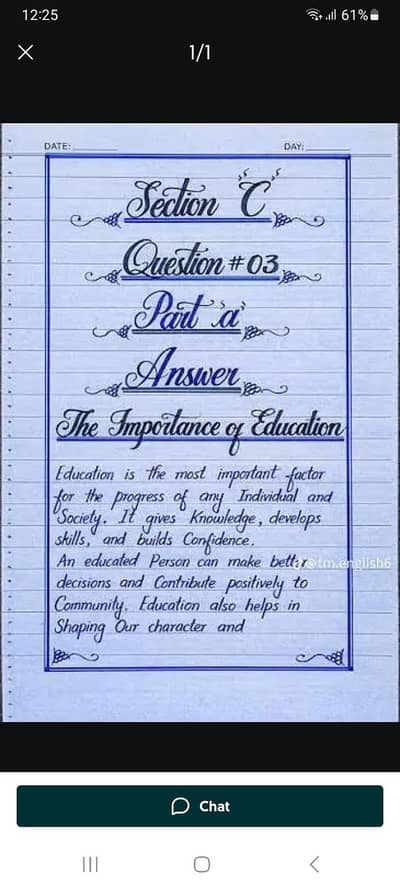 12:25
61%
1/1
DATE:
DAY:
Section "C"
Question # 03
Part 'a'
Answer
The Importance of Education
Education is the most important factor
for the progress of any Individual and
Society. It gives Knowledge, develops
skills, and builds Confidence.
An educated Person can make better
@tm.english6
decisions and Contribute positively to
Community. Education also helps in
Shaping Our character and
Chat